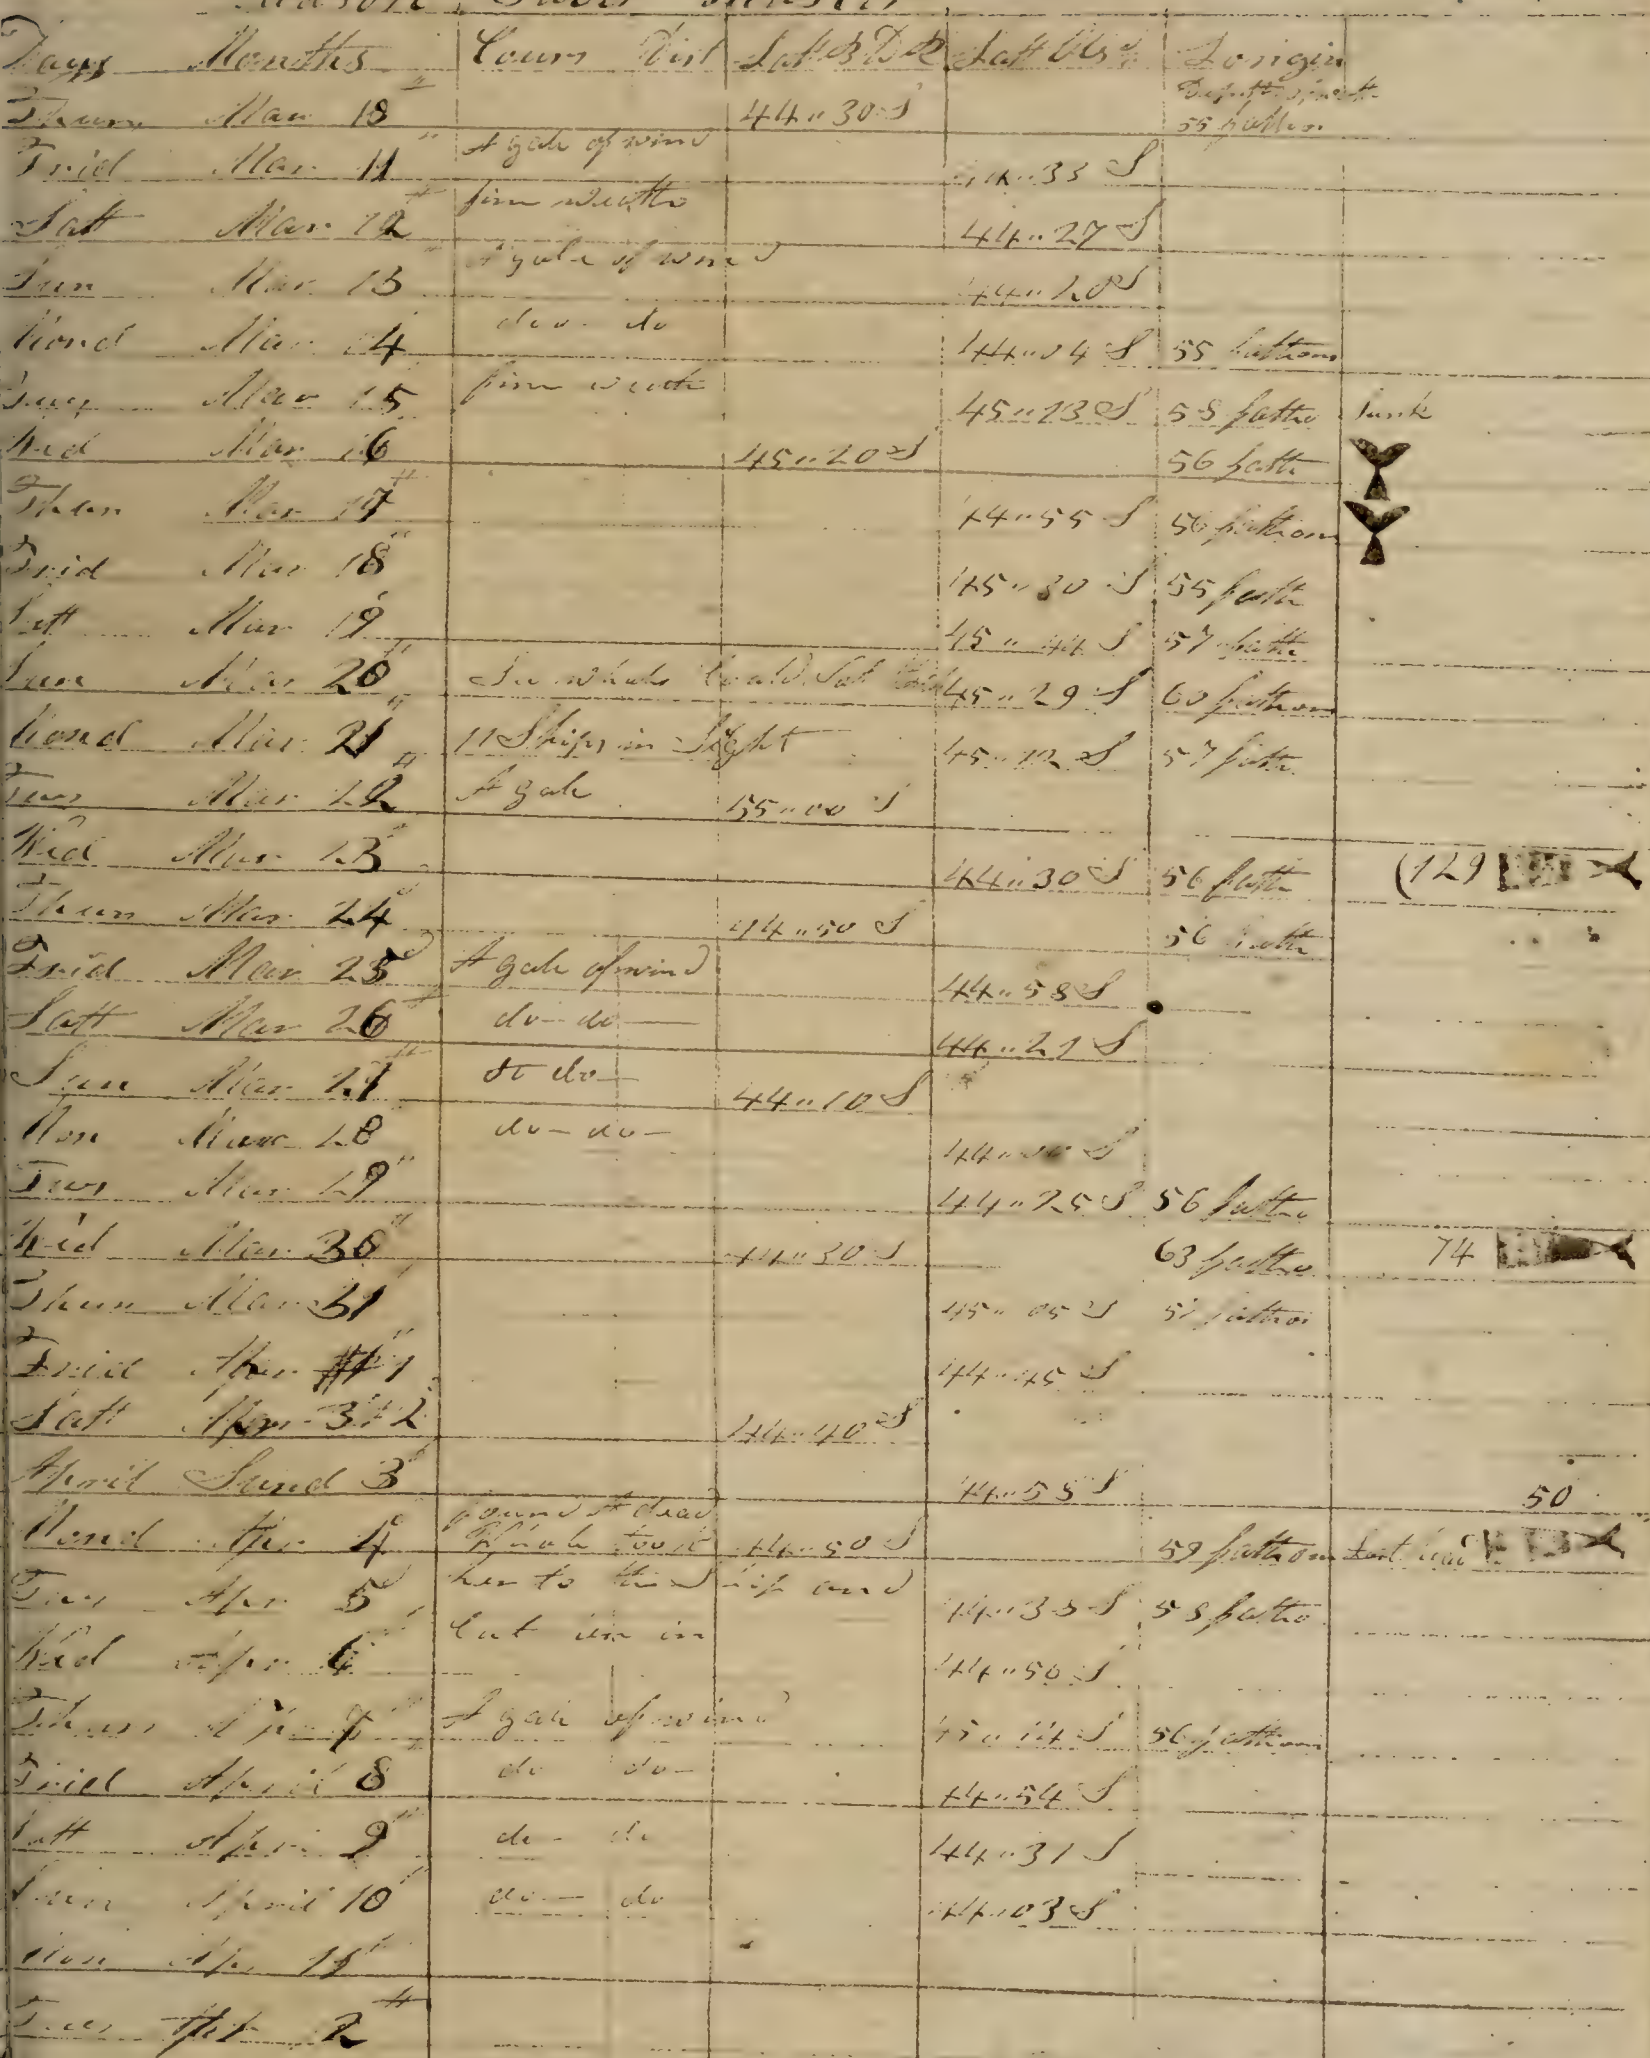 Days Months Cours Dist Latt B D R Latt Obsd Longin
Thurs Mar 10 44"30 S Depth of watt
55 fathom
Frid Mar 11 A gale of wind 44"33 S
Satt Mar 12 finn weather 44"27 S
Sun Mar 13 A gale of wind 44"20 S
Mond Mar 14 do do 44"04 S 55 fathoms
Tues Mar 15 finn weath 45"23 S 58 fatho Sunk
Wed Mar 16 45"20 S 56 fath
Thurs Mar 17 44"55 S 56 fathom
Frid Mar 18 45"30 S 55 fath
Satt Mar 19 45"44 S 57 fath
Sun Mar 20 whals Could Not 45"29 S 60 fathom
Mond Mar 21 11 Ships in Sight 45"12 S 57 fath
Tues Mar 22 A gale 00 S
Wed Mar 23 44"30 S 56 fath (129
Thurs Mar 24 44"50 S 56 fath
Frid Mar 25 A gale of wind 44"58 S
Satt Mar 26 do - do 44"21 S
Sun Mar 27 do 44"10 S
Mon Mar 28 do - do - 44" S
Tues Mar 29 44"25 S 56 fatho
Wed Mar 30 44"30 S 63 fatho 74
Thurs Mar 31 45"05 S
Frid Apr 1 44"45 S
Satt Apr 2 44"40 S
April Sund 3 44"55 S 50
Mond Apr 4 found A dead
Whale took 44"50 S 59 fathom
Tues Apr 5 her to the Ship and 44"38 S 58 fatho
Wed Apr 6 Cut him in 44"50 S
Thurs Apr 7 A gale of wind 45"14 S 56 fathom
Frid April 8 do do - 44"54 S
Satt Apr 9 do - do 44"31 S
Sun April 10 do - do 44"03 S
Mon Ap 11
Tues